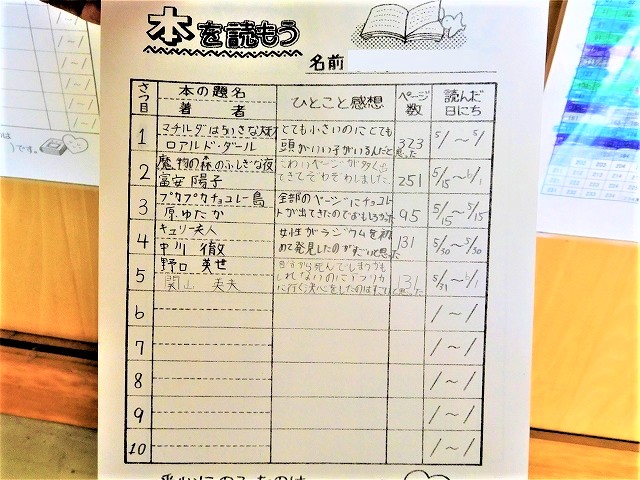 本を読もう
名前
さつ目
本の題名
著者
ひとこと感想
ページ数
読んだ日にち
1
マチルダはちいさな大天才
ロアルド・ダール
とても小さいのにとても
頭がいい子がいるんだと思った
323
5/1〜5/1
2
魔物の森のふしぎな夜
富安陽子
こわいページが多く出
てきてぞわぞわしました。
251
5/15〜6/1
3
プカプカチョコレー島
原ゆたか
全部のページにチョコレー
トが出てきたのでおもしろかった
95
5/15〜5/15
4
キュリー夫人
中川 徹
女性がラジウムを初
めて発見したのがすごいと思った
131
5/30〜5/30
5
野口英世
関山 英夫
自分から死んでしまうかも
しれないのにアフリカ
に行く決心をしたのはすごいと思った
131
5/31〜6/1
6
/〜/
7
/〜/
8
/〜/
9
/〜/
10
/〜/